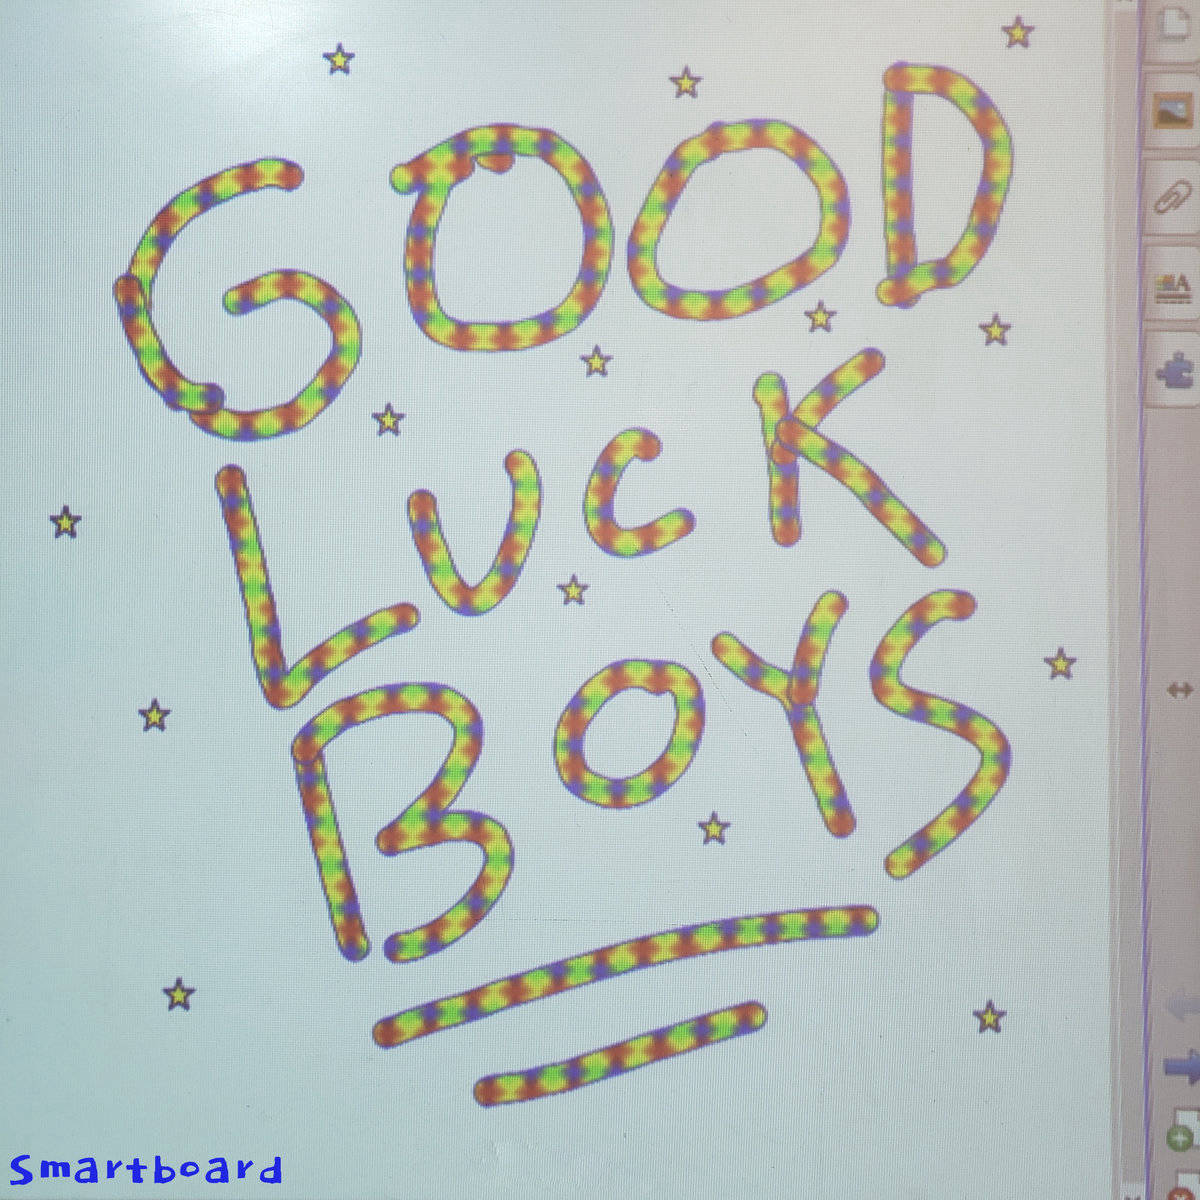 GOOD
LUCK
BOYS
Smartboard